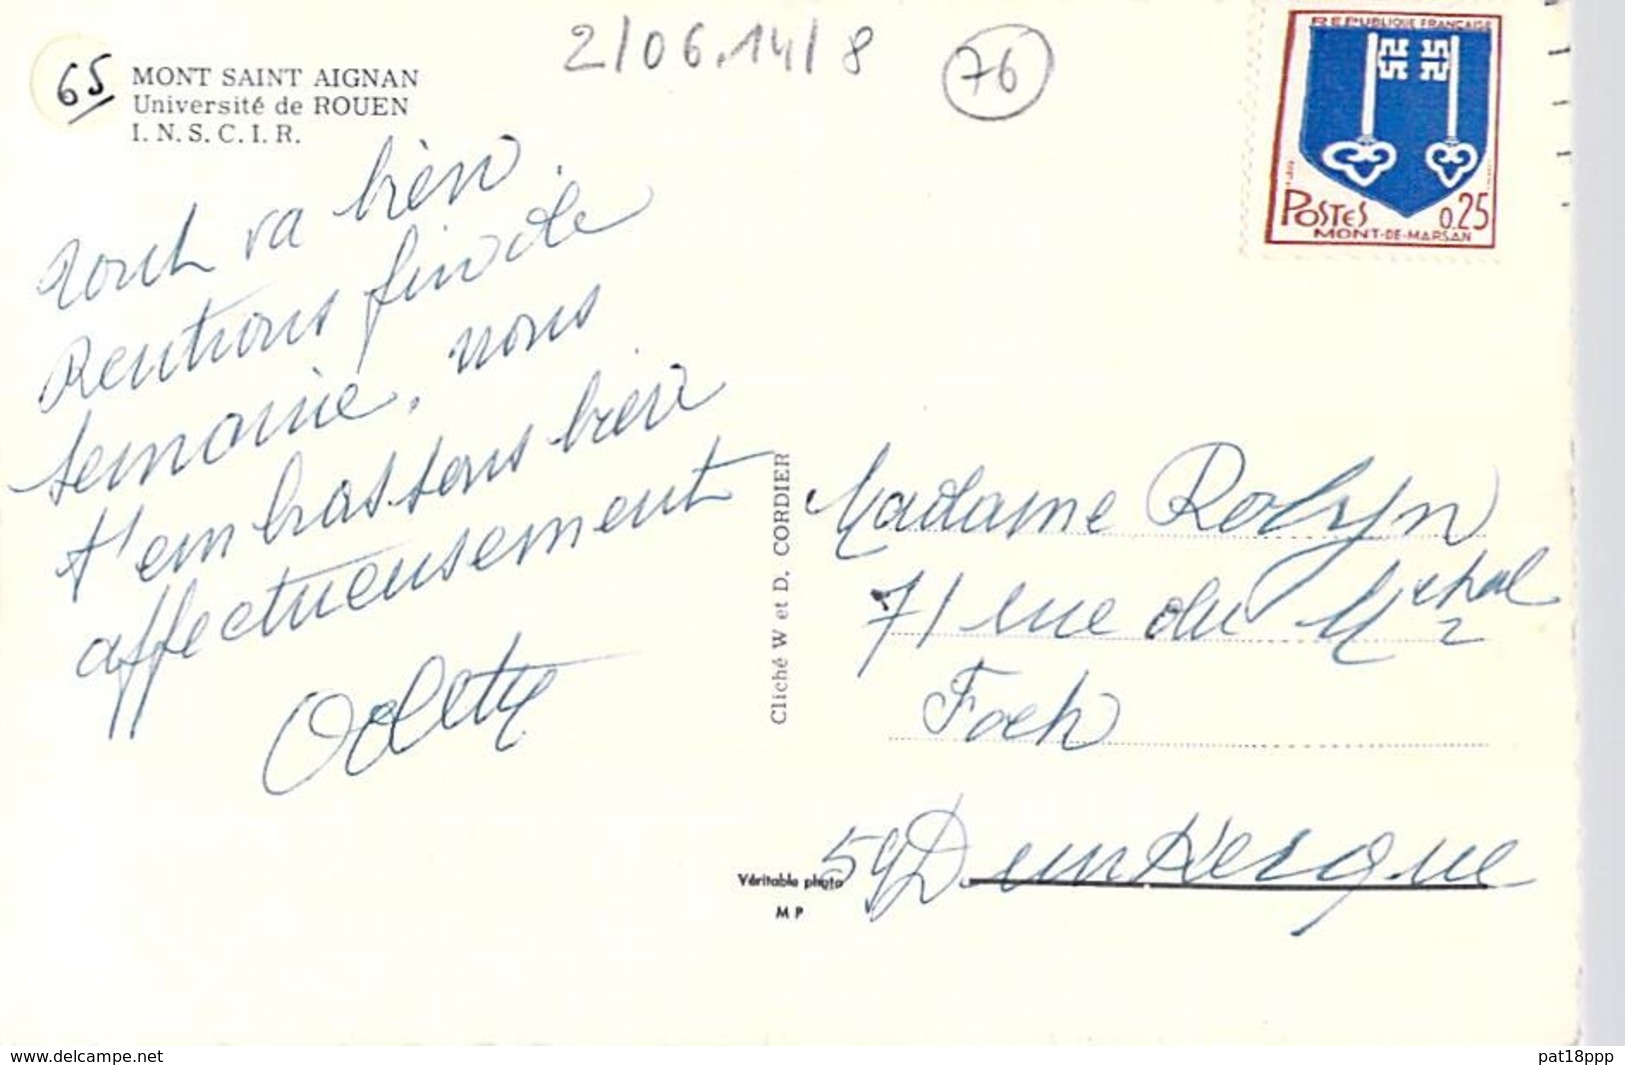 2/06.14/8
76
65
MONT SAINT AIGNAN
Université de ROUEN
I. N. S. C. I. R.
REPUBLIQUE FRANÇAISE
POSTES 0.25
MONT-DE-MARSAN
Tout va bien.
Rentrons fin de
semaine, nous
t'embrassons bien
affectueusement
Odette
Cliché W et D. CORDIER
Madame Robyn
71 rue du Mchal
Foch
59 Dunkerque
Véritable photo
M P
www.delcampe.net
pat18ppp